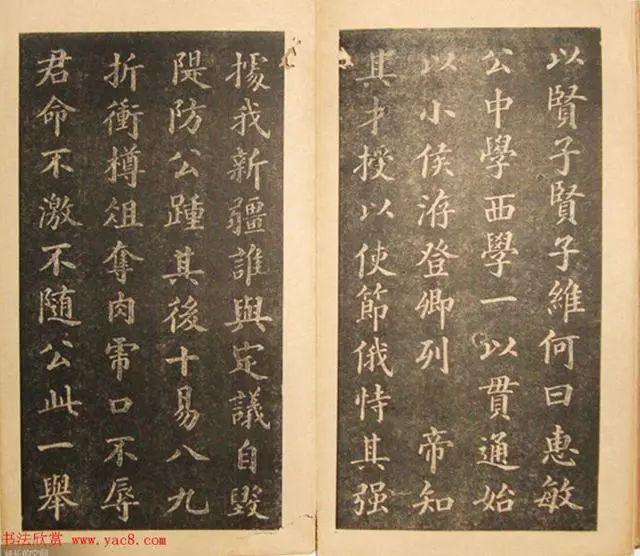 以賢子賢子維何曰惠敏
公中學西學一以貫通始
以小侯洊登卿列 帝知
其才授以使節俄恃其强
據我新疆誰與定議自毀
隄防公踵其後十易八九
折衝樽俎奪肉虎口不辱
君命不激不隨公此一舉
书法欣赏
www.yac8.com